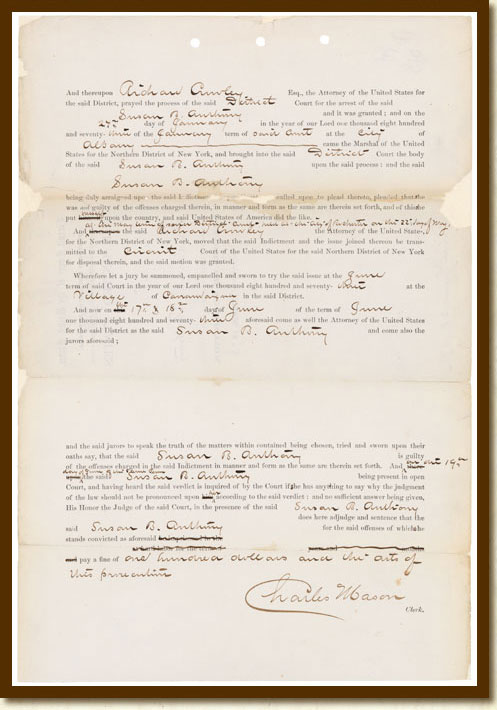 And thereupon Richard Crowley Esq., the Attorney of the United States for
the said District, prayed the process of the said District Court for the arrest of the said
Susan B. Anthony and it was granted; and on the
day of January in the year of our Lord one thousand eight hundred
and seventy- of the January term of said at the City of
Albany came the Marshal of the United
States for the Northern District of New York, and brought into the said District Court the body
of the said Susan B. Anthony upon the said process: and the said
Susan B. Anthony
being duly arraigned upon the said called upon to plead thereto, pleaded that
was not guilty of the offenses charged therein, in manner and form as the same are therein set forth, and of this
put upon the country, and said United States of America did the like.
at the May term of District Court held at the city of Rochester on the 22d day of May
And the said Richard Crowley the Attorney of the United States,
for the Northern District of New York, moved that the said Indictment and the issue joined thereon be trans-
mitted to the Circuit Court of the United States for the said Northern District of New York
for disposal therein, and the said motion was granted.
Wherefore let a jury be summoned, empanelled and sworn to try the said issue at the June
term of said Court in the year of our Lord one thousand eight hundred and seventy- at the
Village of Canandaigua in the said District.
And now on the 17th & 18th day of June of the term of June
one thousand eight hundred and seventy- aforesaid come as well the Attorney of the United States
for the said District as the said Susan B. Anthony and come also the
jurors aforesaid;
and the said jurors to speak the truth of the matters within contained being chosen, tried and sworn upon their
oaths say, that the said Susan B. Anthony is guilty
of the offenses charged in the said Indictment in manner and form as the same are therein set forth. And on the 19th
day of June
the said Susan B. Anthony being present in open
Court, and having heard the said verdict is inquired of by the Court if he has anything to say why the judgment
of the law should not be pronounced upon her according to the said verdict: and no sufficient answer being given,
His Honor the Judge of the said Court, in the presence of the said Susan B. Anthony
does here adjudge and sentence that the
said Susan B. Anthony for the said offenses of which he
stands convicted as aforesaid
pay a fine of one hundred dollars and the costs of
this prosecution
Charles Mason
Clerk.